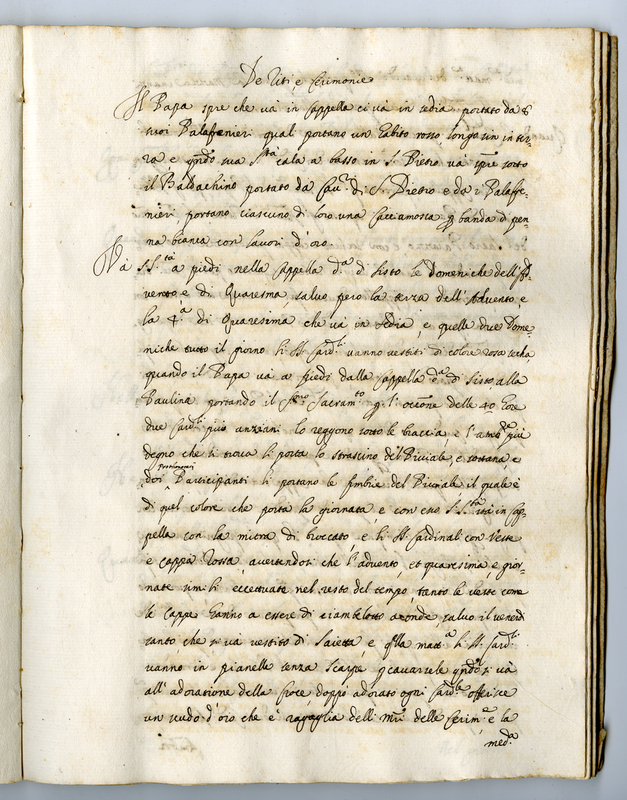 De Riti, e Cerimonie
Il Papa spre che và in Cappella ci và in sedia portato da 8
suoi Palafrenieri qual portano un habito rosso, longo sin in ter-
ra e qndo sua S.tà cala a basso in S. Pietro và spre sotto
il Baldachino portato da Cau.ri di S. Pietro e da 2 Palafre-
nieri portano ciascuno di loro una Cacciamosca p banda di pen-
na bianca con lauori d'oro.
Và S.S.tà a piedi nella Cappella d.a di Sisto le Domeniche dell'Ad-
uento e di Quaresma, saluo però la terza dell'Aduento, e
la 4.a di Quaresima che và in sedia, e quelle due Dome
niche tutto il giorno li SS. Card.li vanno vestiti di colore rosa secha,
quando il Papa và a piedi dalla Cappella d.a di Sisto alla
Paulina portando il SS.mo Sacram.to p l'occne delle 40 hore
due Card.li più anziani lo reggono sotto le braccia, e l'amb.re più
degno che si troua li porta lo strascino del Piuiale, e sottana, e
doi Protonotari Participanti li portano le fimbrie del Piuiale il quale è
di quel colore che porta la giornata, e con esso S.S.tà stà in Cap-
pella con la mitra di broccato, e li SS. Cardinali con Veste
e cappa Rossa, auertendosi che l'aduento, et quaresima, e gior-
nate simili eccettuate nel resto del tempo, tanto le veste come
le Cappe hanno a essere di ciambelotto a onde, saluo il venerdi
santo, che si và vestito di Saietta, e qlla matt.a li SS. Card.li
vanno in pianelle senza scarpe p cauarsele qndo si và
all'adoratione della Croce, doppò adorato ogni Card.le offerisce
un scudo d'oro che è regaglia delli Mri delle Cerim.e e la
med.a